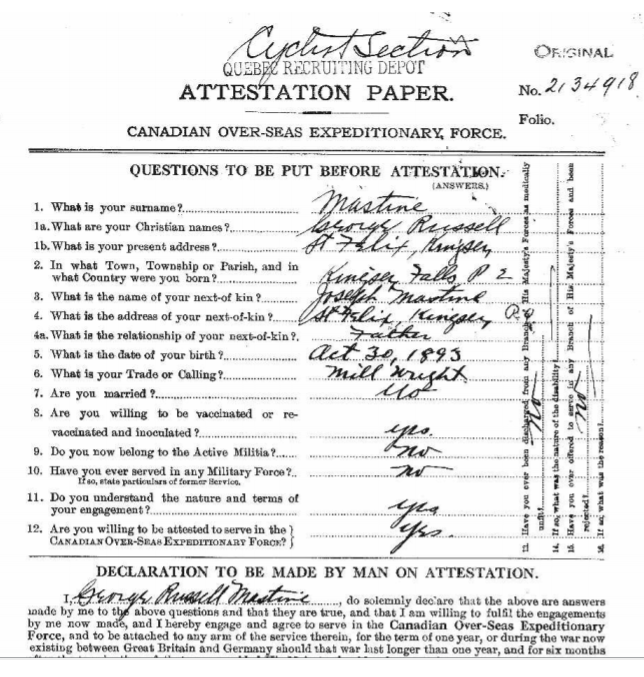 Cyclist Section
QUEBEC RECRUITING DEPOT
ORIGINAL
ATTESTATION PAPER.
No. 2134918
Folio.
CANADIAN OVER-SEAS EXPEDITIONARY FORCE.
QUESTIONS TO BE PUT BEFORE ATTESTATION.
(ANSWERS.)
1. What is your surname?........ Mastine
1a. What are your Christian names?........ George Russell
1b. What is your present address?........ St Felix, Kingsey
2. In what Town, Township or Parish, and in
what Country were you born?........ Kingsey Falls P Q
3. What is the name of your next-of kin?........ Joseph Mastine
4. What is the address of your next-of-kin?........ St Felix, Kingsey P.Q
4a. What is the relationship of your next-of-kin?. Father
5. What is the date of your birth?........ Oct 30, 1893
6. What is your Trade or Calling?........ Mill Wright
7. Are you married?........ no
8. Are you willing to be vaccinated or re-
vaccinated and inoculated?........ yes.
9. Do you now belong to the Active Militia?........ no
10. Have you ever served in any Military Force?.. no
If so, state particulars of former Service.
11. Do you understand the nature and terms of
your engagement?........ yes
12. Are you willing to be attested to serve in the }
CANADIAN OVER-SEAS EXPEDITIONARY FORCE? } Yes.
13. Have you ever been discharged from any Branch of His Majesty's Forces as medically
unfit? no
14. If so, what was the nature of the disability?
15. Have you ever offered to serve in any Branch of His Majesty's Forces and been
rejected? no
16. If so, what was the reason?
DECLARATION TO BE MADE BY MAN ON ATTESTATION.
I, George Russell Mastine ........, do solemnly declare that the above are answers
made by me to the above questions and that they are true, and that I am willing to fulfil the engagements
by me now made, and I hereby engage and agree to serve in the Canadian Over-Seas Expeditionary
Force, and to be attached to any arm of the service therein, for the term of one year, or during the war now
existing between Great Britain and Germany should that war last longer than one year, and for six months